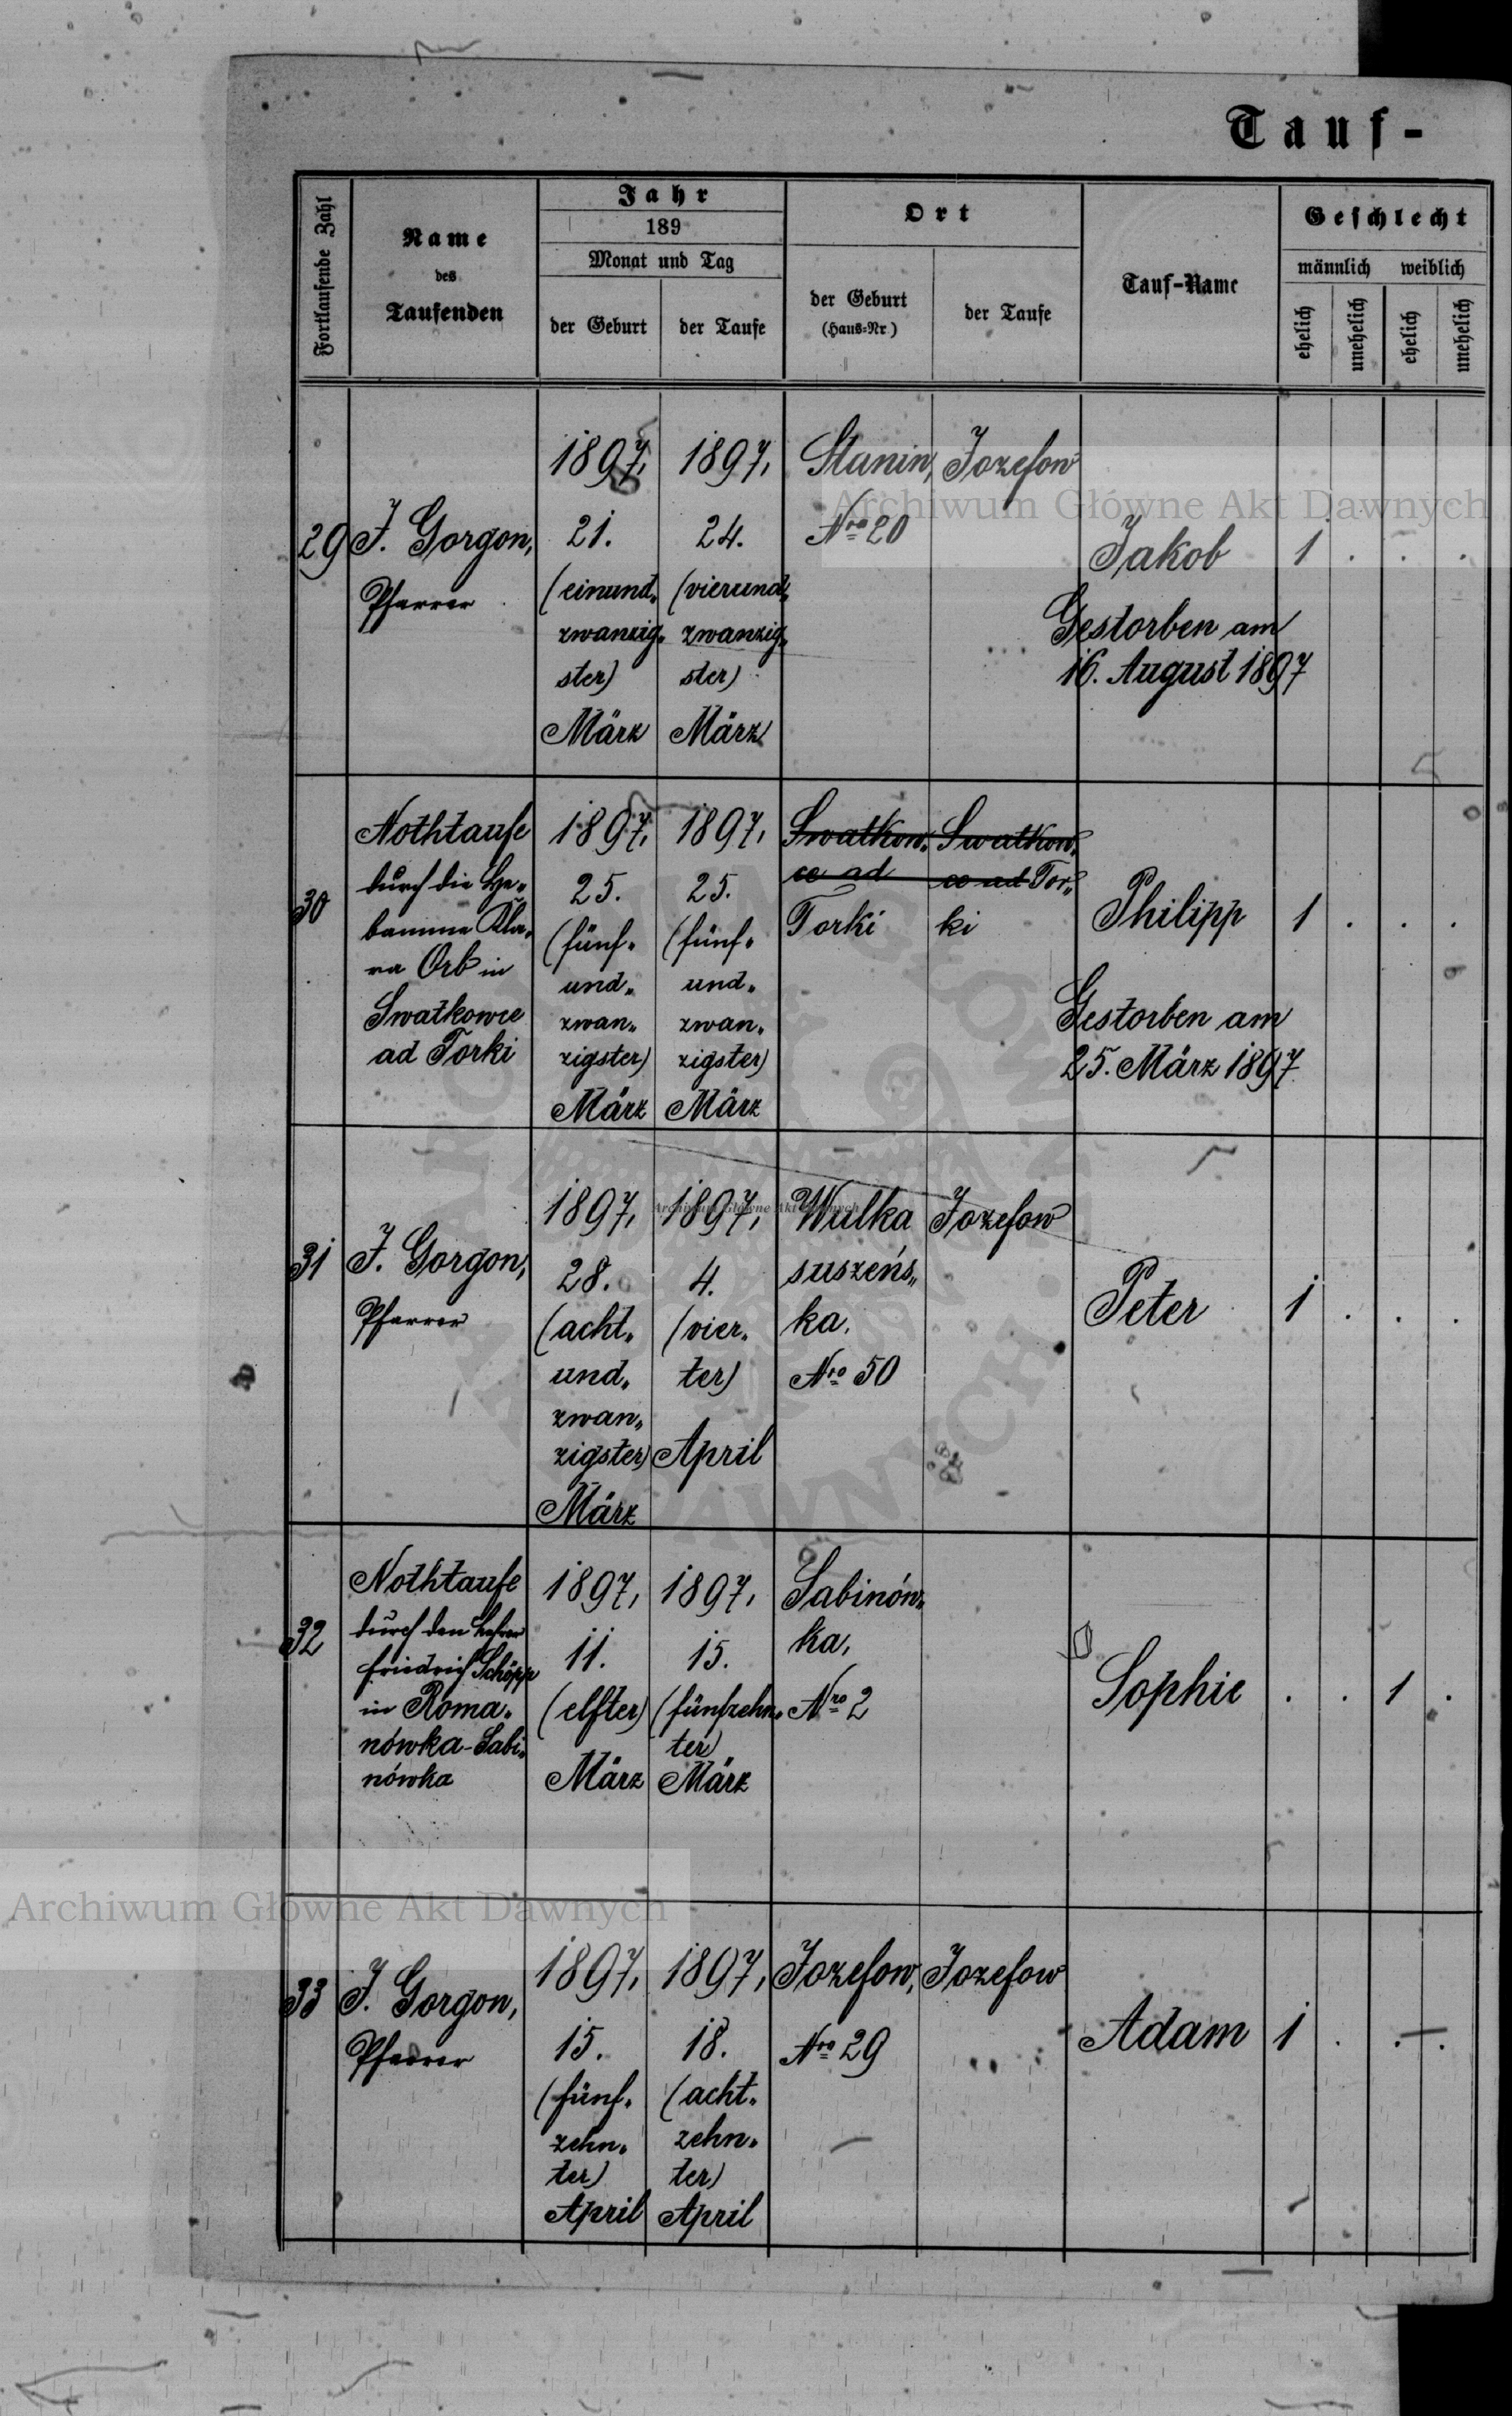 Tauf-
Fortlaufende Zahl
Name
des
Taufenden
Jahr
189
Monat und Tag
der Geburt
der Taufe
Ort
der Geburt
(Haus-Nr.)
der Taufe
Tauf-Name
Geschlecht
männlich
weiblich
ehelich
unehelich
ehelich
unehelich
29
J. Gorgon,
Pfarrer
1897,
21.
(einund„
zwanzig„
ster)
März
1897,
24.
(vierund„
zwanzig„
ster)
März
Stanin,
Nro 20
Jozefow
Jakob
Gestorben am
16. August 1897
1 . . .
30
Nothtaufe
durch die He„
bamme Kla„
ra Orb in
Swatkowce
ad Torki
1897,
25.
(fünf„
und„
zwan„
zigster)
März
1897,
25.
(fünf„
und„
zwan„
zigster)
März
Swatkow„
ce ad
Torki
Swatkow„
ce ad Tor„
ki
Philipp
Gestorben am
25. März 1897
1 . . .
31
J. Gorgon,
Pfarrer
1897,
28.
(acht„
und„
zwan„
zigster)
März
1897,
4.
(vier„
ter)
April
Wulka
suszeńs„
ka,
Nro 50
Jozefow
Peter
1 . . .
32
Nothtaufe
durch den Lehrer
Friedrich Schöpp
in Roma„
nówka-Sabi„
nówka
1897,
11.
(elfter)
März
1897,
15.
(fünfzehn„
ter)
März
Sabinów„
ka,
Nro 2
Sophie
. . 1 .
33
J. Gorgon,
Pfarrer
1897,
15.
(fünf„
zehn„
ter)
April
1897,
18.
(acht„
zehn„
ter)
April
Jozefow,
Nro 29
Jozefow
Adam
1 . . .
Archiwum Główne Akt Dawnych
Archiwum Główne Akt Dawnych
Archiwum Główne Akt Dawnych